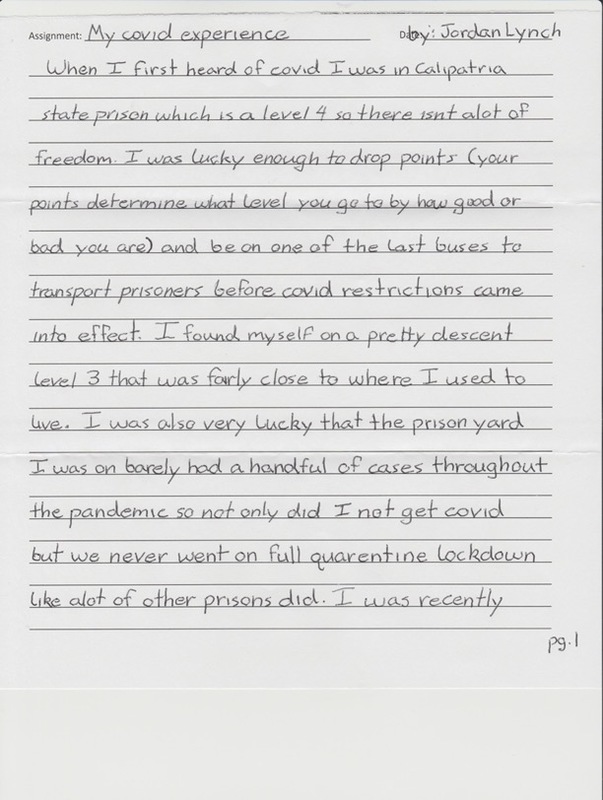 Assignment: My covid experience by: Jordan Lynch
When I first heard of covid I was in Calipatria
state prison which is a level 4 so there isnt alot of
freedom. I was lucky enough to drop points (your
points determine what level you go to by how good or
bad you are) and be on one of the last buses to
transport prisoners before covid restrictions came
into effect. I found myself on a pretty descent
level 3 that was fairly close to where I used to
live. I was also very lucky that the prison yard
I was on barely had a handful of cases throughout
the pandemic so not only did I not get covid
but we never went on full quarentine lockdown
like alot of other prisons did. I was recently
pg.1